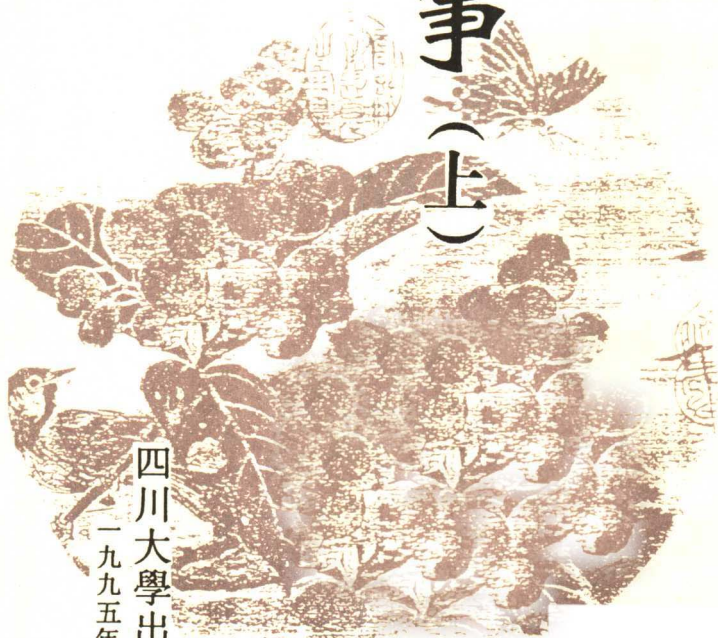 事(上)
四川大學出
一九九五年